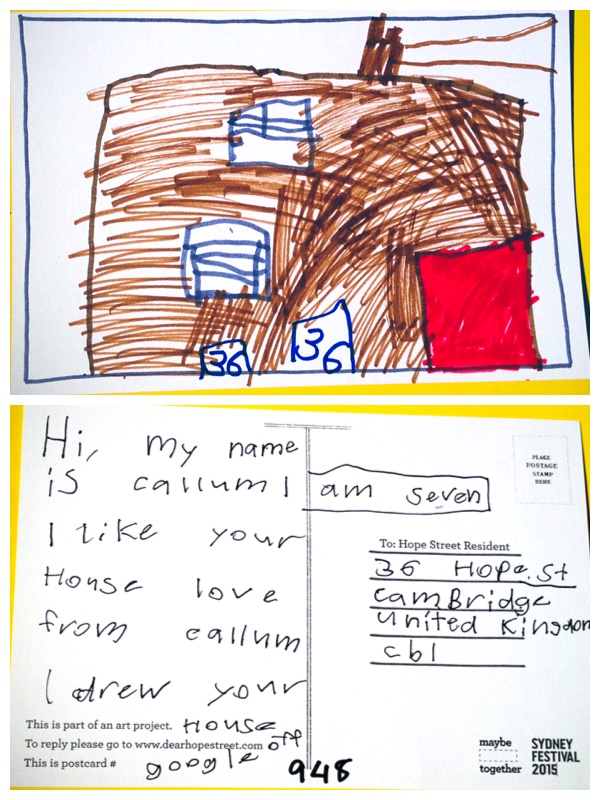 36
36
Hi, my name
is callum I am seven
I like your
House love
from callum
I drew your
House off
google
This is part of an art project.
To reply please go to www.dearhopestreet.com
This is postcard # 948
PLACE
POSTAGE
STAMP
HERE
To: Hope Street Resident
36 Hope.St
camBridge
united Kingdom
cb1
maybe
together
SYDNEY
FESTIVAL
2015